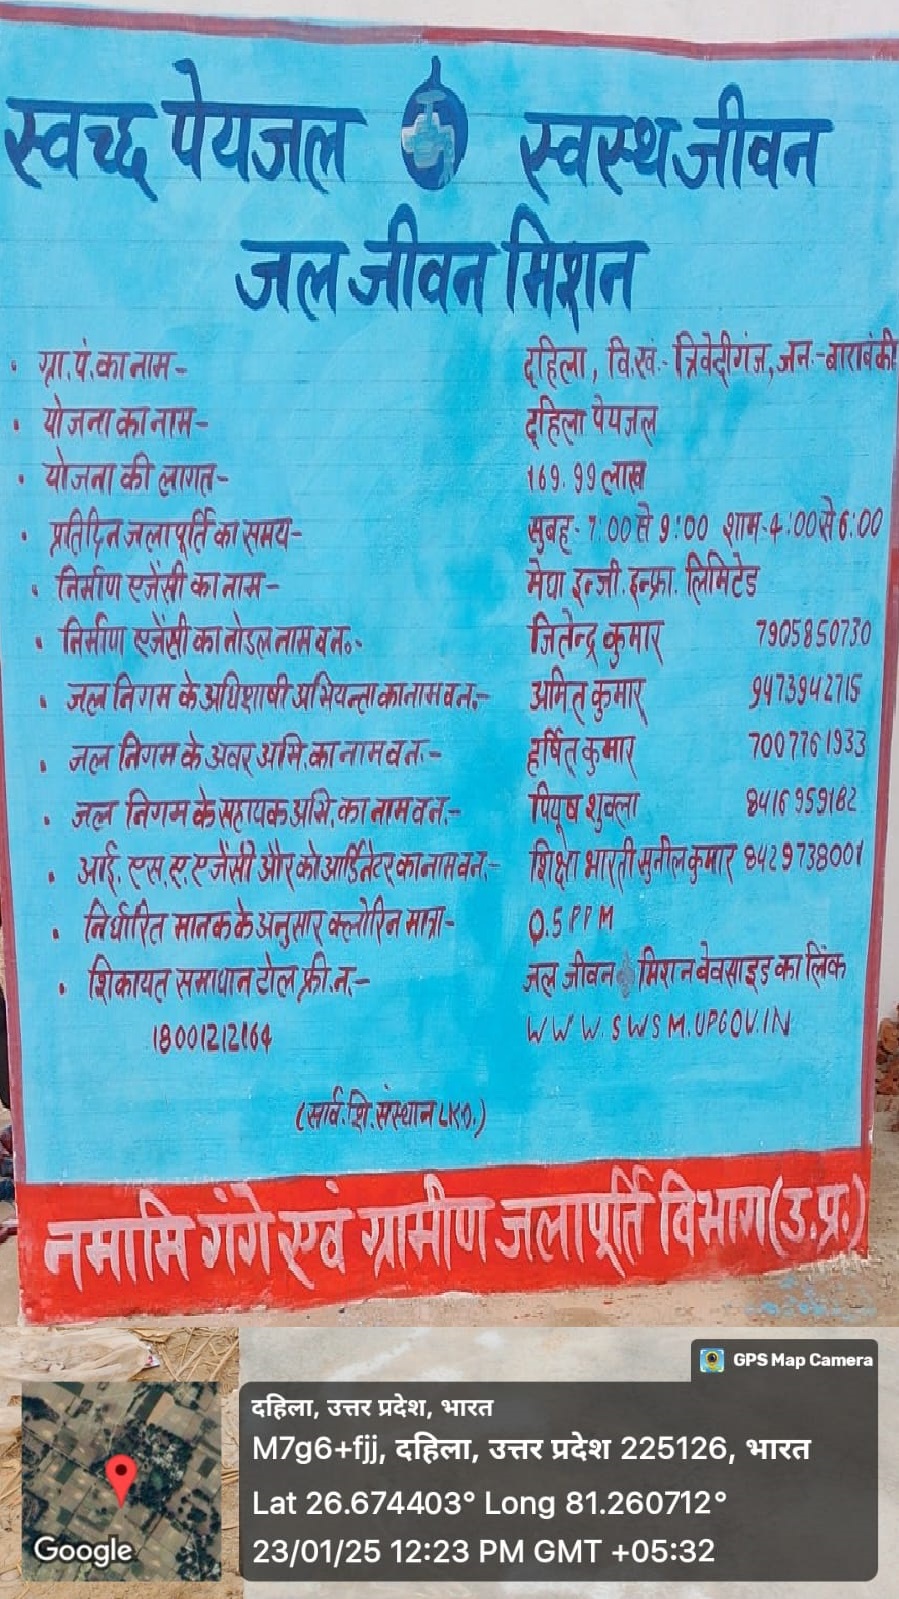 स्वच्छ पेयजल स्वस्थ जीवन
जल जीवन मिशन
• ग्रा.पं.का नाम- दहिला, वि.खं.- त्रिवेदीगंज,जन.-बाराबंकी
• योजना का नाम- दहिला पेयजल
• योजना की लागत- 169.99 लाख
• प्रतिदिन जलापूर्ति का समय- सुबह- 7:00 से 9:00 शाम-4:00 से 6:00
• निर्माण एजेंसी का नाम- मेघा इन्जी. इन्फ्रा. लिमिटेड
• निर्माण एजेंसी का नोडल नाम व न०- जितेन्द्र कुमार 7905850730
• जल निगम के अधिशाषी अभियन्ता का नाम व न.- अमित कुमार 9473942715
• जल निगम के अवर अभि. का नाम व न.- हर्षित् कुमार 7007761933
• जल निगम के सहायक अभि. का नाम व न.- पियूष शुक्ला 8416959182
• आई. एस. ए. एजेंसी और को आर्डिनेटर का नाम व न.- शिक्षा भारती सुनील कुमार 8429738001
• निर्धारित मानक के अनुसार क्लोरिन मात्रा- 0.5 PPM
• शिकायत समाधान टोल फ्री. न.- जल जीवन मिशन वेवसाइड का लिंक
18001212164 WWW.SWSM.UPGOV.IN
(सार्व. शि. संस्थान LKO.)
नमामि गंगे एवं ग्रामीण जलापूर्ति विभाग (उ.प्र.)
GPS Map Camera
दहिला, उत्तर प्रदेश, भारत
M7g6+fjj, दहिला, उत्तर प्रदेश 225126, भारत
Lat 26.674403° Long 81.260712°
23/01/25 12:23 PM GMT +05:32
Google